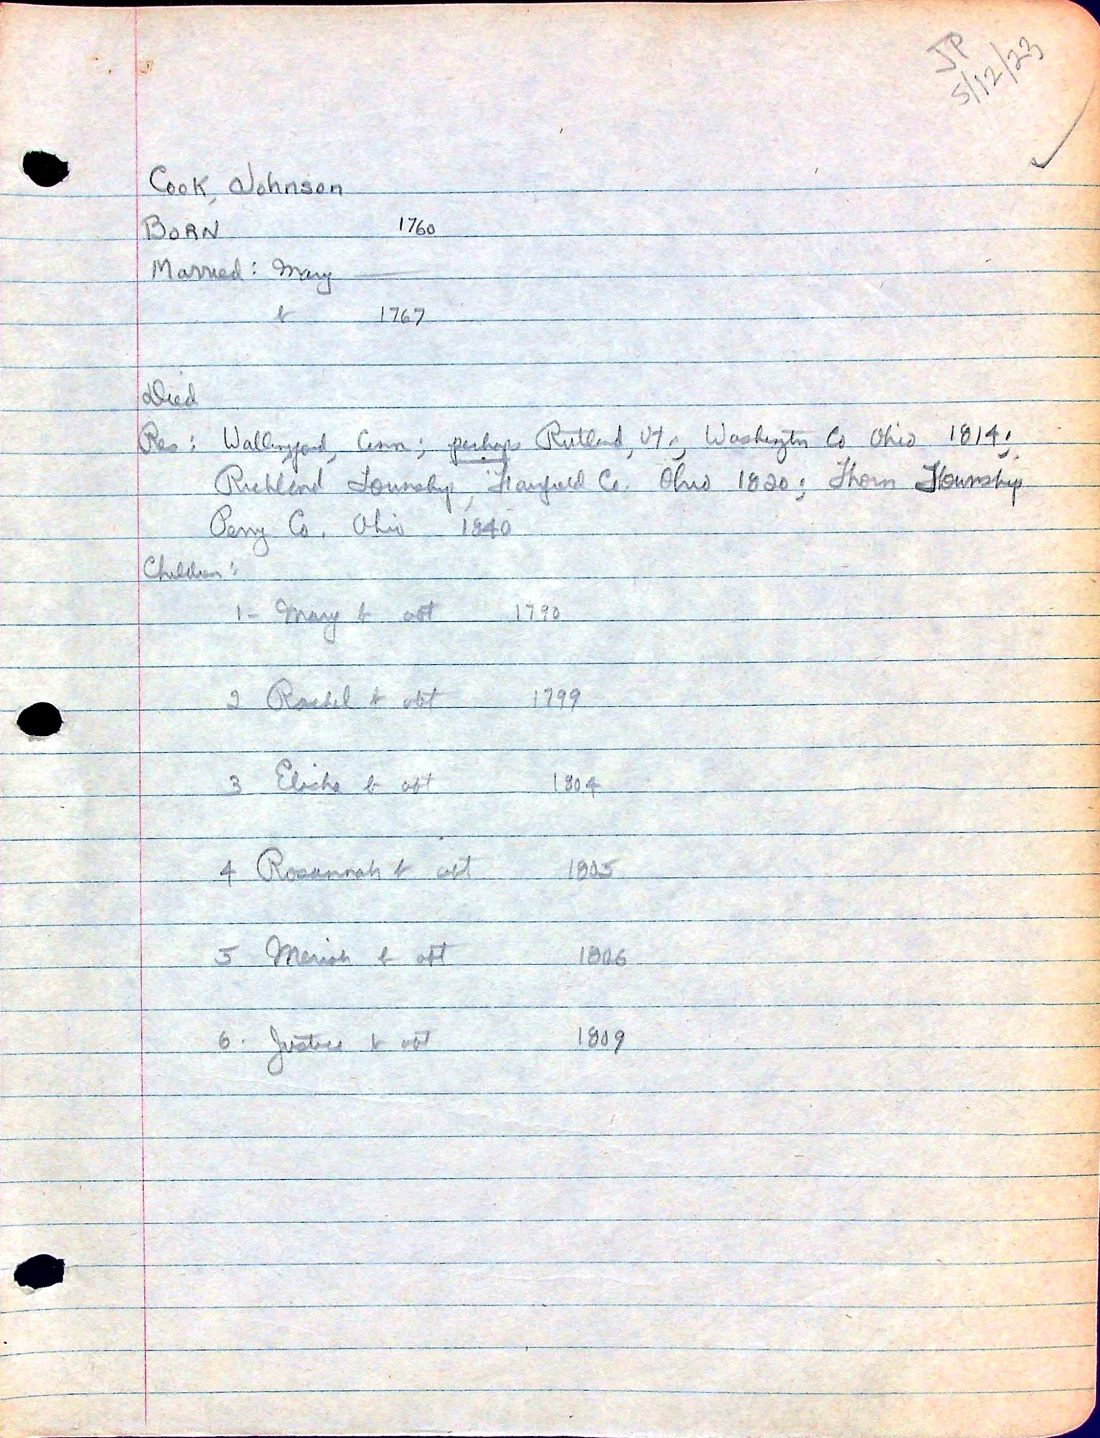 JP
5/12/23
Cook, Johnson
BORN 1760
Married: Mary ——
b 1767
Died
Res: Wallingford, Conn; perhaps Rutland, Vt; Washington Co Ohio 1814;
Richland Township, Fairfield Co. Ohio 1820; Thorn Township
Perry Co. Ohio 1840
Children:
1- Mary b abt 1790
2 Rachel b abt 1799
3 Elisha b abt 1804
4 Rosannah b abt 1805
5 Meriah b abt 1806
6. Justice b abt 1809